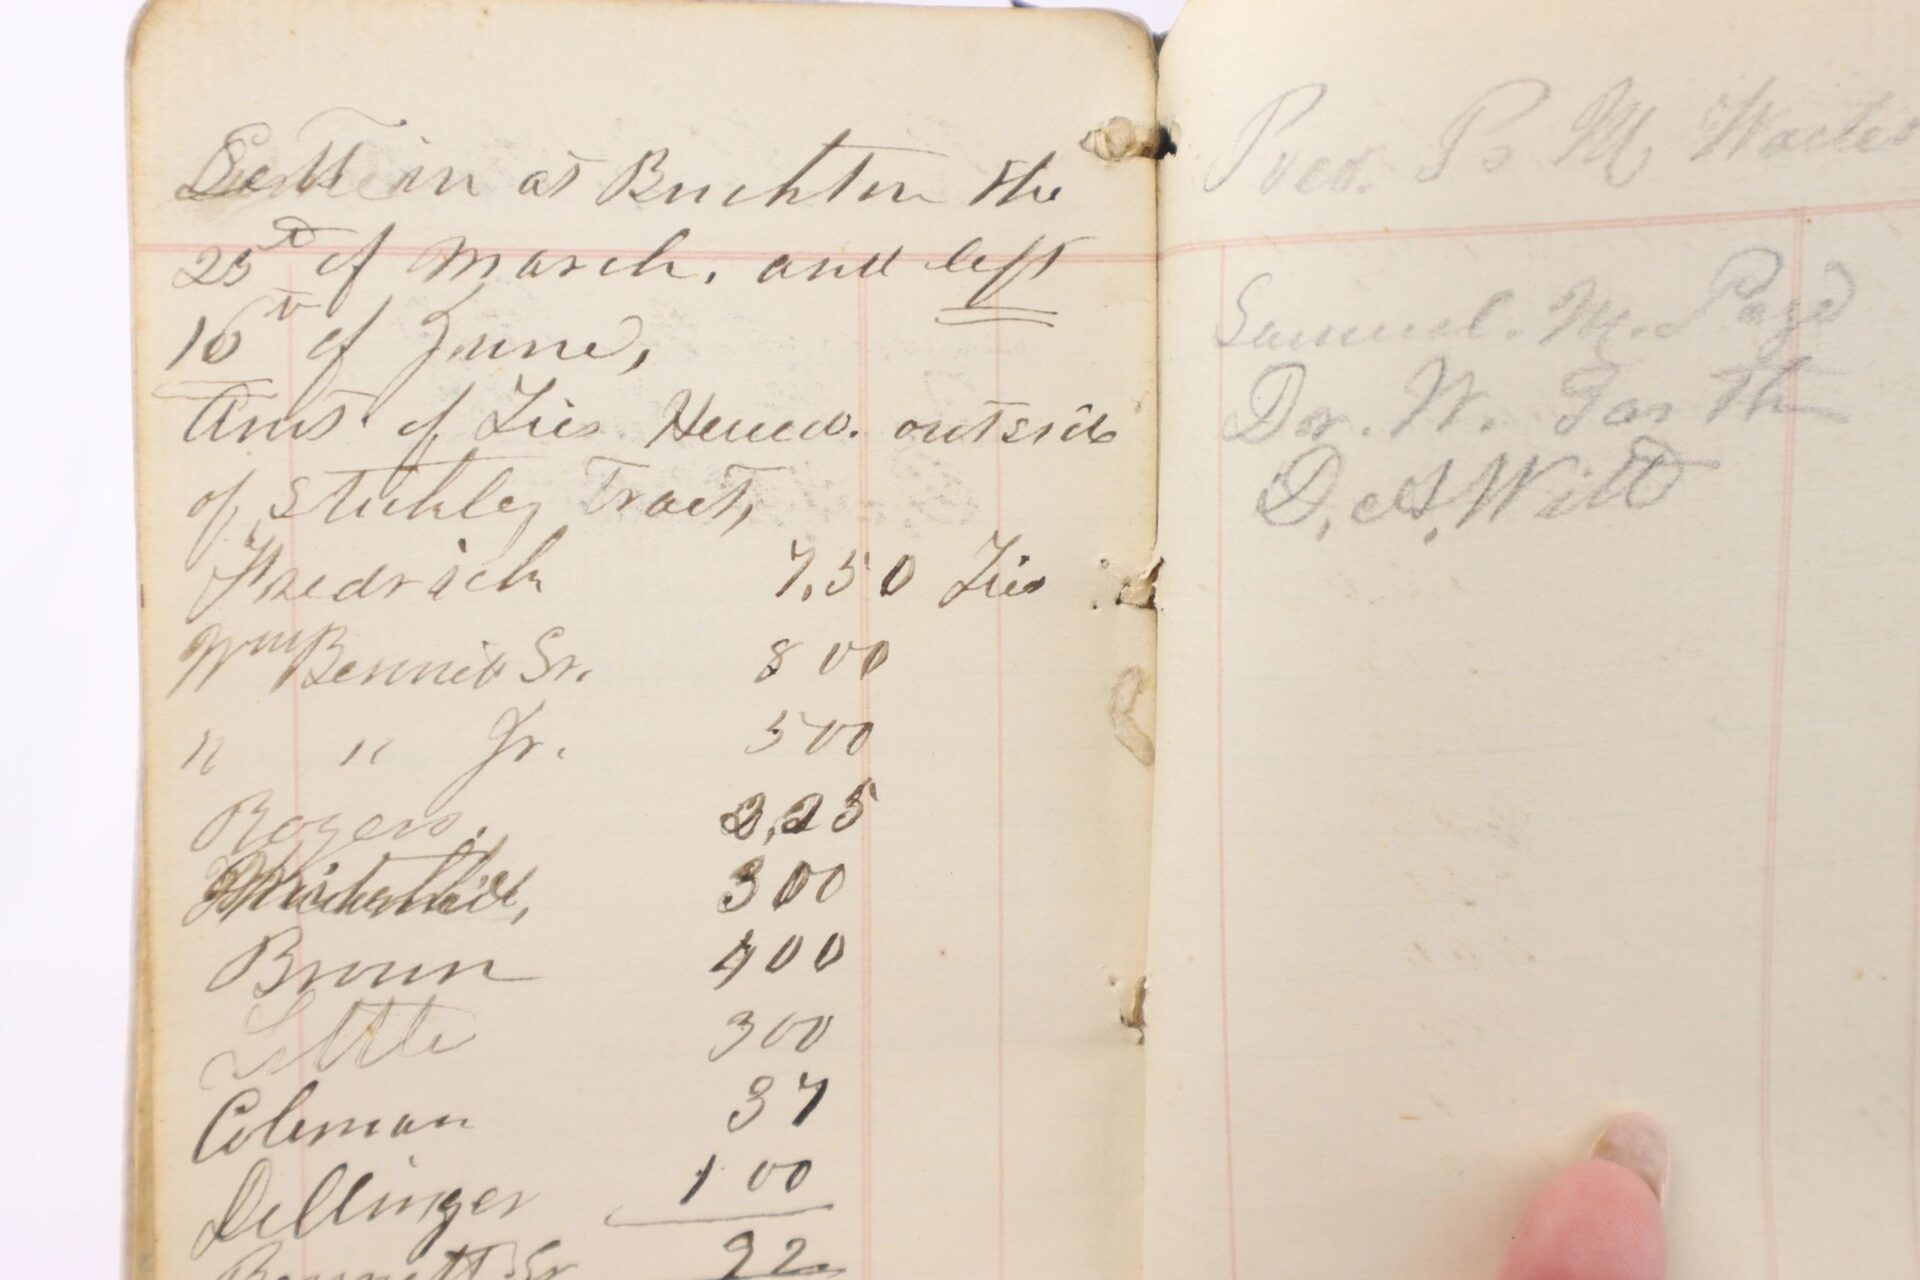 in at Buckton the
25th of March, and left
16th of June,
Amt. of Ties Hewed. outside
of Stickley Tract,
Fredrick 7,50 Ties
Wm Bennett Sr. 800
" " Jr. 500
Rogers. 3,25
300
Brown 400
Little 300
Coleman 37
Dellinger 100
Bennett Sr 92
P. M.
Samuel. M. Page
Dr. W. Garth
D. A. Witt